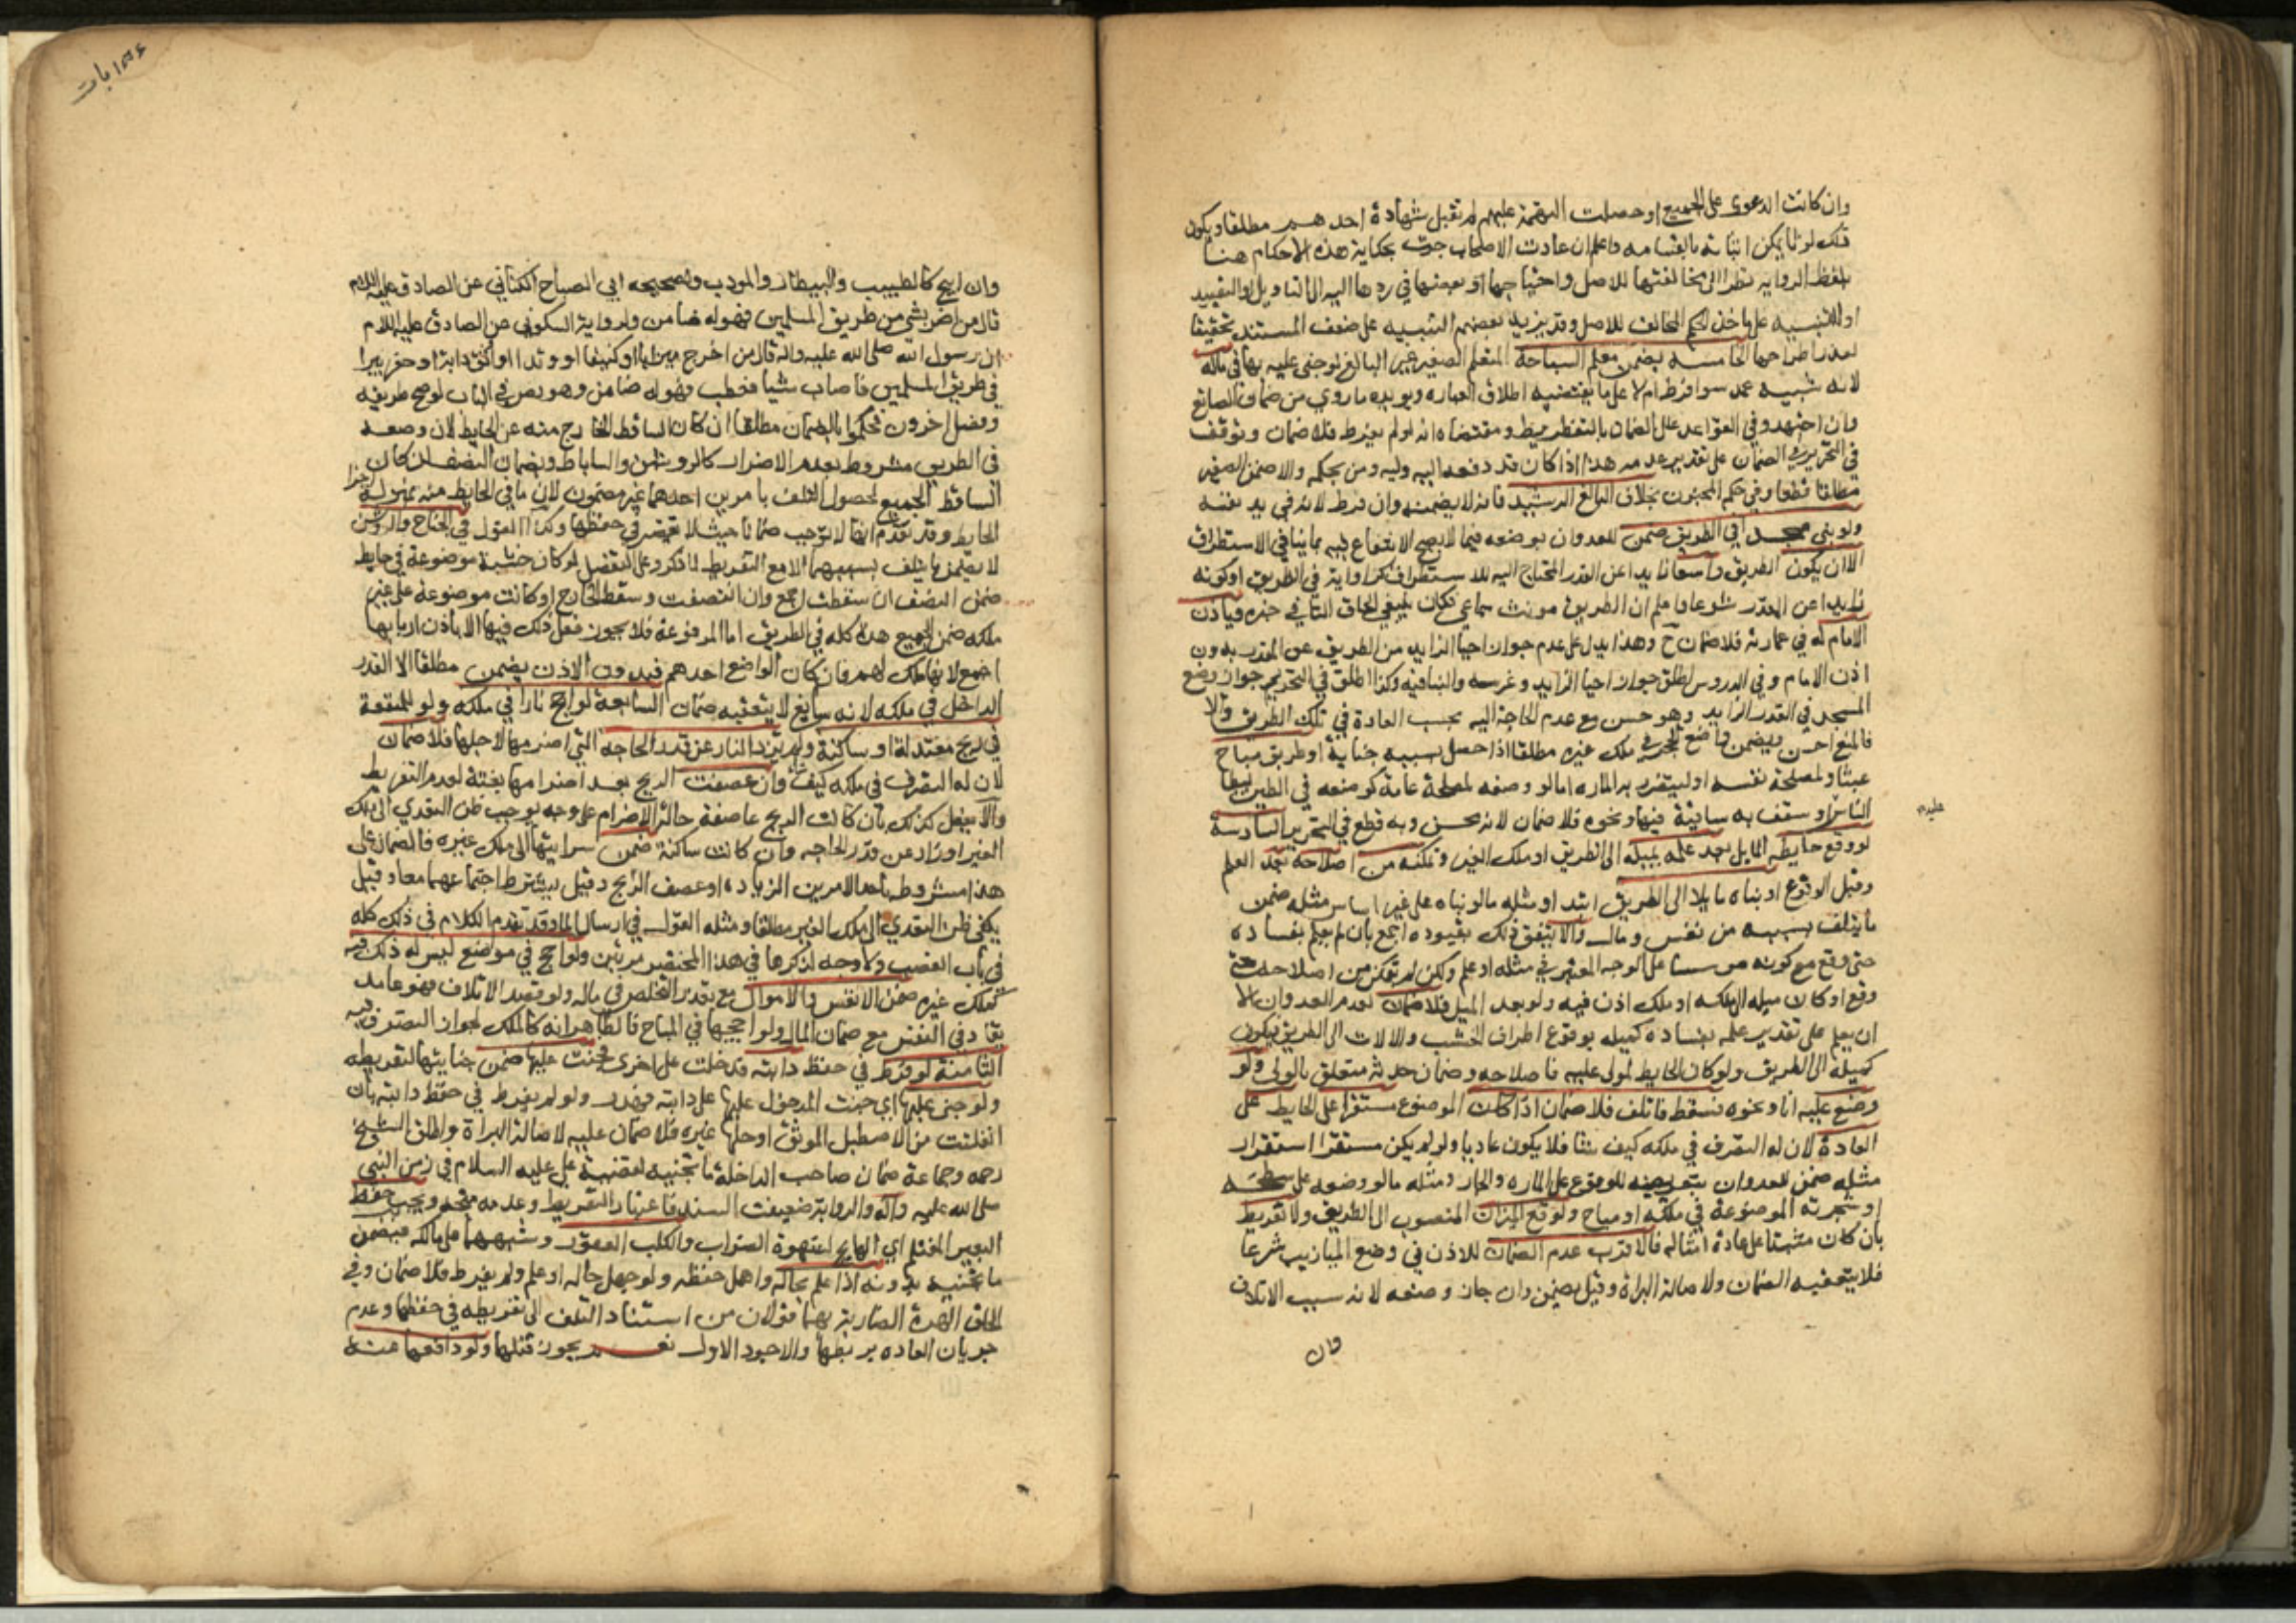 وان كانت الدعوى على الجميع او حصلت التهمة عليهم لم تقبل شهادة احدهم مطلقا ويكون
ذلك لوثا يمكن اثباته بالقسامه واعلم ان عادت الاصحاب جرت بحكاية هذه الاحكام هنا
بلفظ الروايه نظرا الى مخالفتها للاصل واحتياجها او بعضها في ردها اليه الى التاويل او التقييد
او للتنبيه على ماخذ الحكم المخالف للاصل وقد يزيد بعضهم التنبيه على ضعف المستند تحقيقا
لعذر اطراحها الخامسه يضمن معلم السباحة المتعلم الصغير غير البالغ لو جنى عليه بها في ماله
لانه شبيه عمد سوا فرط ام لا على ما يقتضيه اطلاق العباره ويويده ما روي من ضمان الصانع
وان اجتهد وفي القواعد علل الضمان بالتفريط ومقتضاه انه لو لم يفرط فلا ضمان وتوقف
في التحرير في الضمان على تقدير عدمه هذا اذا كان قد دفعه اليه وليه ومن بحكمه والا ضمن الصغير
مطلقا قطعا وفي حكم المجنون بخلاف البالغ الرشيد فانه لا يضمنه وان فرط لانه في يد نفسه
ولو بنى مسجدا في الطريق ضمن للعدوان بوضعه فيما لا يصح الانتفاع فيه بما ينافي الاستطراق
الا ان يكون الطريق واسعا زايدا عن القدر المحتاج اليه للاستطراق كزاوية في الطريق او كونه
زايدا عن المقدر شرعا واعلم ان الطريق مونث سماعي فكان ينبغي الحاق التا في خبره وياذن
الامام له في عمارته فلا ضمان ح وهذا يدل على عدم جواز احيا الزايد من الطريق عن المقدر بدون
اذن الامام وفي الدروس اطلق جواز احيا الزايد وغرسه والبنا فيه وكذا اطلق في التحرير جواز وضع
المسجد في القدر الزايد وهو حسن مع عدم الحاجة اليه بحسب العادة في تلك الطريق والا
فالمنع احسن ويضمن واضع الحجر في ملك غيره مطلقا اذا حصل بسببه جناية او طريق مباح
عبثا او لمصلحة نفسه او ليتضرر به الماره اما لو وضعه لمصلحة عامة كوضعه في الطين ليطا
عليه
الناس او سقف به ساقية فيها ونحوه فلا ضمان لانه محسن وبه قطع في التحرير السادسة
لو وقع حايطه المايل بعد علمه بميله الى الطريق او ملك الغير وتمكنه من اصلاحه بعد العلم
وقبل الوقوع او بناه مايلا الى الطريق ابتدا ومثله ما لو بناه على غير اساس مثله ضمن
ما يتلف بسببه من نفس ومال والا يتفق ذلك بقيوده اجمع بان لم يعلم بفساده
حتى وقع مع كونه موسسا على الوجه المعتبر في مثله او علم ولكن لم تمكن من اصلاحه حتى
وقع او كان ميله الى ملكه او ملك اذن فيه ولو بعد الميل فلا ضمان لعدم العدوان الا
ان يعلم على تقدير علمه بفساده كميله بوقوع اطراف الخشب والالات الى الطريق فيكون
كميله الى الطريق ولو كان الحايط لمولى عليه فاصلاحه وضمان حدثه متعلق بالولي ولو
وضع عليه انا ونحوه فسقط فاتلف فلا ضمان اذا كان الموضوع مستقرا على الحايط على
العادة لان له التصرف في ملكه كيف شا فلا يكون عاديا ولو لم يكن مستقرا استقرار
مثله ضمن للعدوان بتعريضه للوقوع على الماره والجار ومثله ما لو وضعه على سطحه
او شجرته الموضوعة في ملكه او مباح ولو وقع الميزاب المنصوب الى الطريق ولا تفريط
بان كان مثبتا على عادة امثاله فالاقرب عدم الضمان للاذن في وضع الميازيب شرعا
فلا يتعقبه الضمان ولاصالة البراة وقيل يضمن وان جاز وضعه لانه سبب الاتلاف
وان
وان ابيح كالطبيب والبيطار والمودب ولصحيحه ابي الصباح الكناني عن الصادق عليه السلام
قال من اضر بشي من طريق المسلمين فهو له ضامن ولرواية السكوني عن الصادق عليه السلام
ان رسول الله صلى الله عليه واله قال من اخرج ميزابا او كنيفا او وتدا او اوثق دابة او حفر بيرا
في طريق المسلمين فاصاب شيا فعطب فهو له ضامن وهو نص في الباب لو صح طريقه
وفصل اخرون فحكموا بالضمان مطلقا ان كان الساقط الخارج منه عن الحايط لان وضعه
في الطريق مشروط بعدم الاضرار كالروشن والساباط وبضمان النصف ان كان
الساقط الجميع لحصول التلف بامرين احدهما غير مضمون لان ما في الحايط منه بمنزلة اجزا
الحايط وقد تقدم انها لا توجب ضمانا حيث لا تقصير في حفظها وكذا القول في الجناح والروشن
لا يضمن ما يتلف بسببهما الا مع التفريط لما ذكر وعلى التفصيل لو كان خشبة موضوعة في حايط
ضمن النصف ان سقطت اجمع وان انتصفت وسقط الخارج او كانت موضوعة على غير
ملكه ضمن الجميع هذا كله في الطريق اما المرفوعة فلا يجوز فعل ذلك فيها الا باذن اربابها
اجمع لانها ملك لهم وان كان الواضع احدهم فبدون الاذن يضمن مطلقا الا القدر
الداخل في ملكه لانه سايغ لا يتعقبه ضمان السابعة لو اجج نارا في ملكه ولو للمنفعة
في ريح معتدلة او ساكنة ولم يزد النار عن قدر الحاجه التي اضرمها لاجلها فلا ضمان
لان له التصرف في ملكه كيف شا وان عصفت الريح بعد اضرامها بغتة لعدم التفريط
والا يفعل كذلك بان كانت الريح عاصفة حالة الاضرام على وجه يوجب ظن التعدي الى ملك
الغير او زاد عن قدر الحاجه وان كانت ساكنة ضمن سرايتها الى ملك غيره فالضمان على
هذا مشروط باحد الامرين الزياده او عصف الريح وقيل يشترط اجتماعهما معا وقيل
يكفي ظن التعدي الى ملك الغير مطلقا ومثله القول في ارسال الما وقد تقدم الكلام في ذلك كله
في باب الغصب ولا وجه لذكرها في هذا المختصر مرتين ولو اجج في موضع ليس له ذلك فيه
كملك غيره ضمن الانفس والاموال مع تعذر التخلص في ماله ولو قصد الاتلاف فهو عامد
يقاد في النفس مع ضمان المال ولو اججها في المباح فالظاهر انه كالملك لجواز التصرف فيه
الثامنة لو فرط في حفظ دابته فدخلت على اخرى فجنت عليها ضمن جنايتها لتفريطه
ولو جنى عليها اي جنت المدخول عليها على دابته فهدر ولو لم يفرط في حفظ دابته بان
انفلتت من الاصطبل الموثق او حلها غيره فلا ضمان عليه لاصالة البراة واطلق الشيخ
رحمه وجماعة ضمان صاحب الداخلة ما تجنيه لقضية علي عليه السلام في زمن النبي
صلى الله عليه واله والرواية ضعيفت السند فاعتبار التفريط وعدمه متجه ويجب حفظ
البعير المغتلم اي الهايج لشهوة الضراب والكلب العقور وشبههما على مالكه فيضمن
ما يجنيه بدونه اذا علم بحاله واهمل حفظه ولو جهل حاله او علم ولم يفرط فلا ضمان وفي
الحاق الهرة الضارية بهما قولان من استناد التلف الى تفريطه في حفظها وعدم
جريان العاده بربطها والاجود الاول نعم يجوز قتلها ولو دافعها عنه